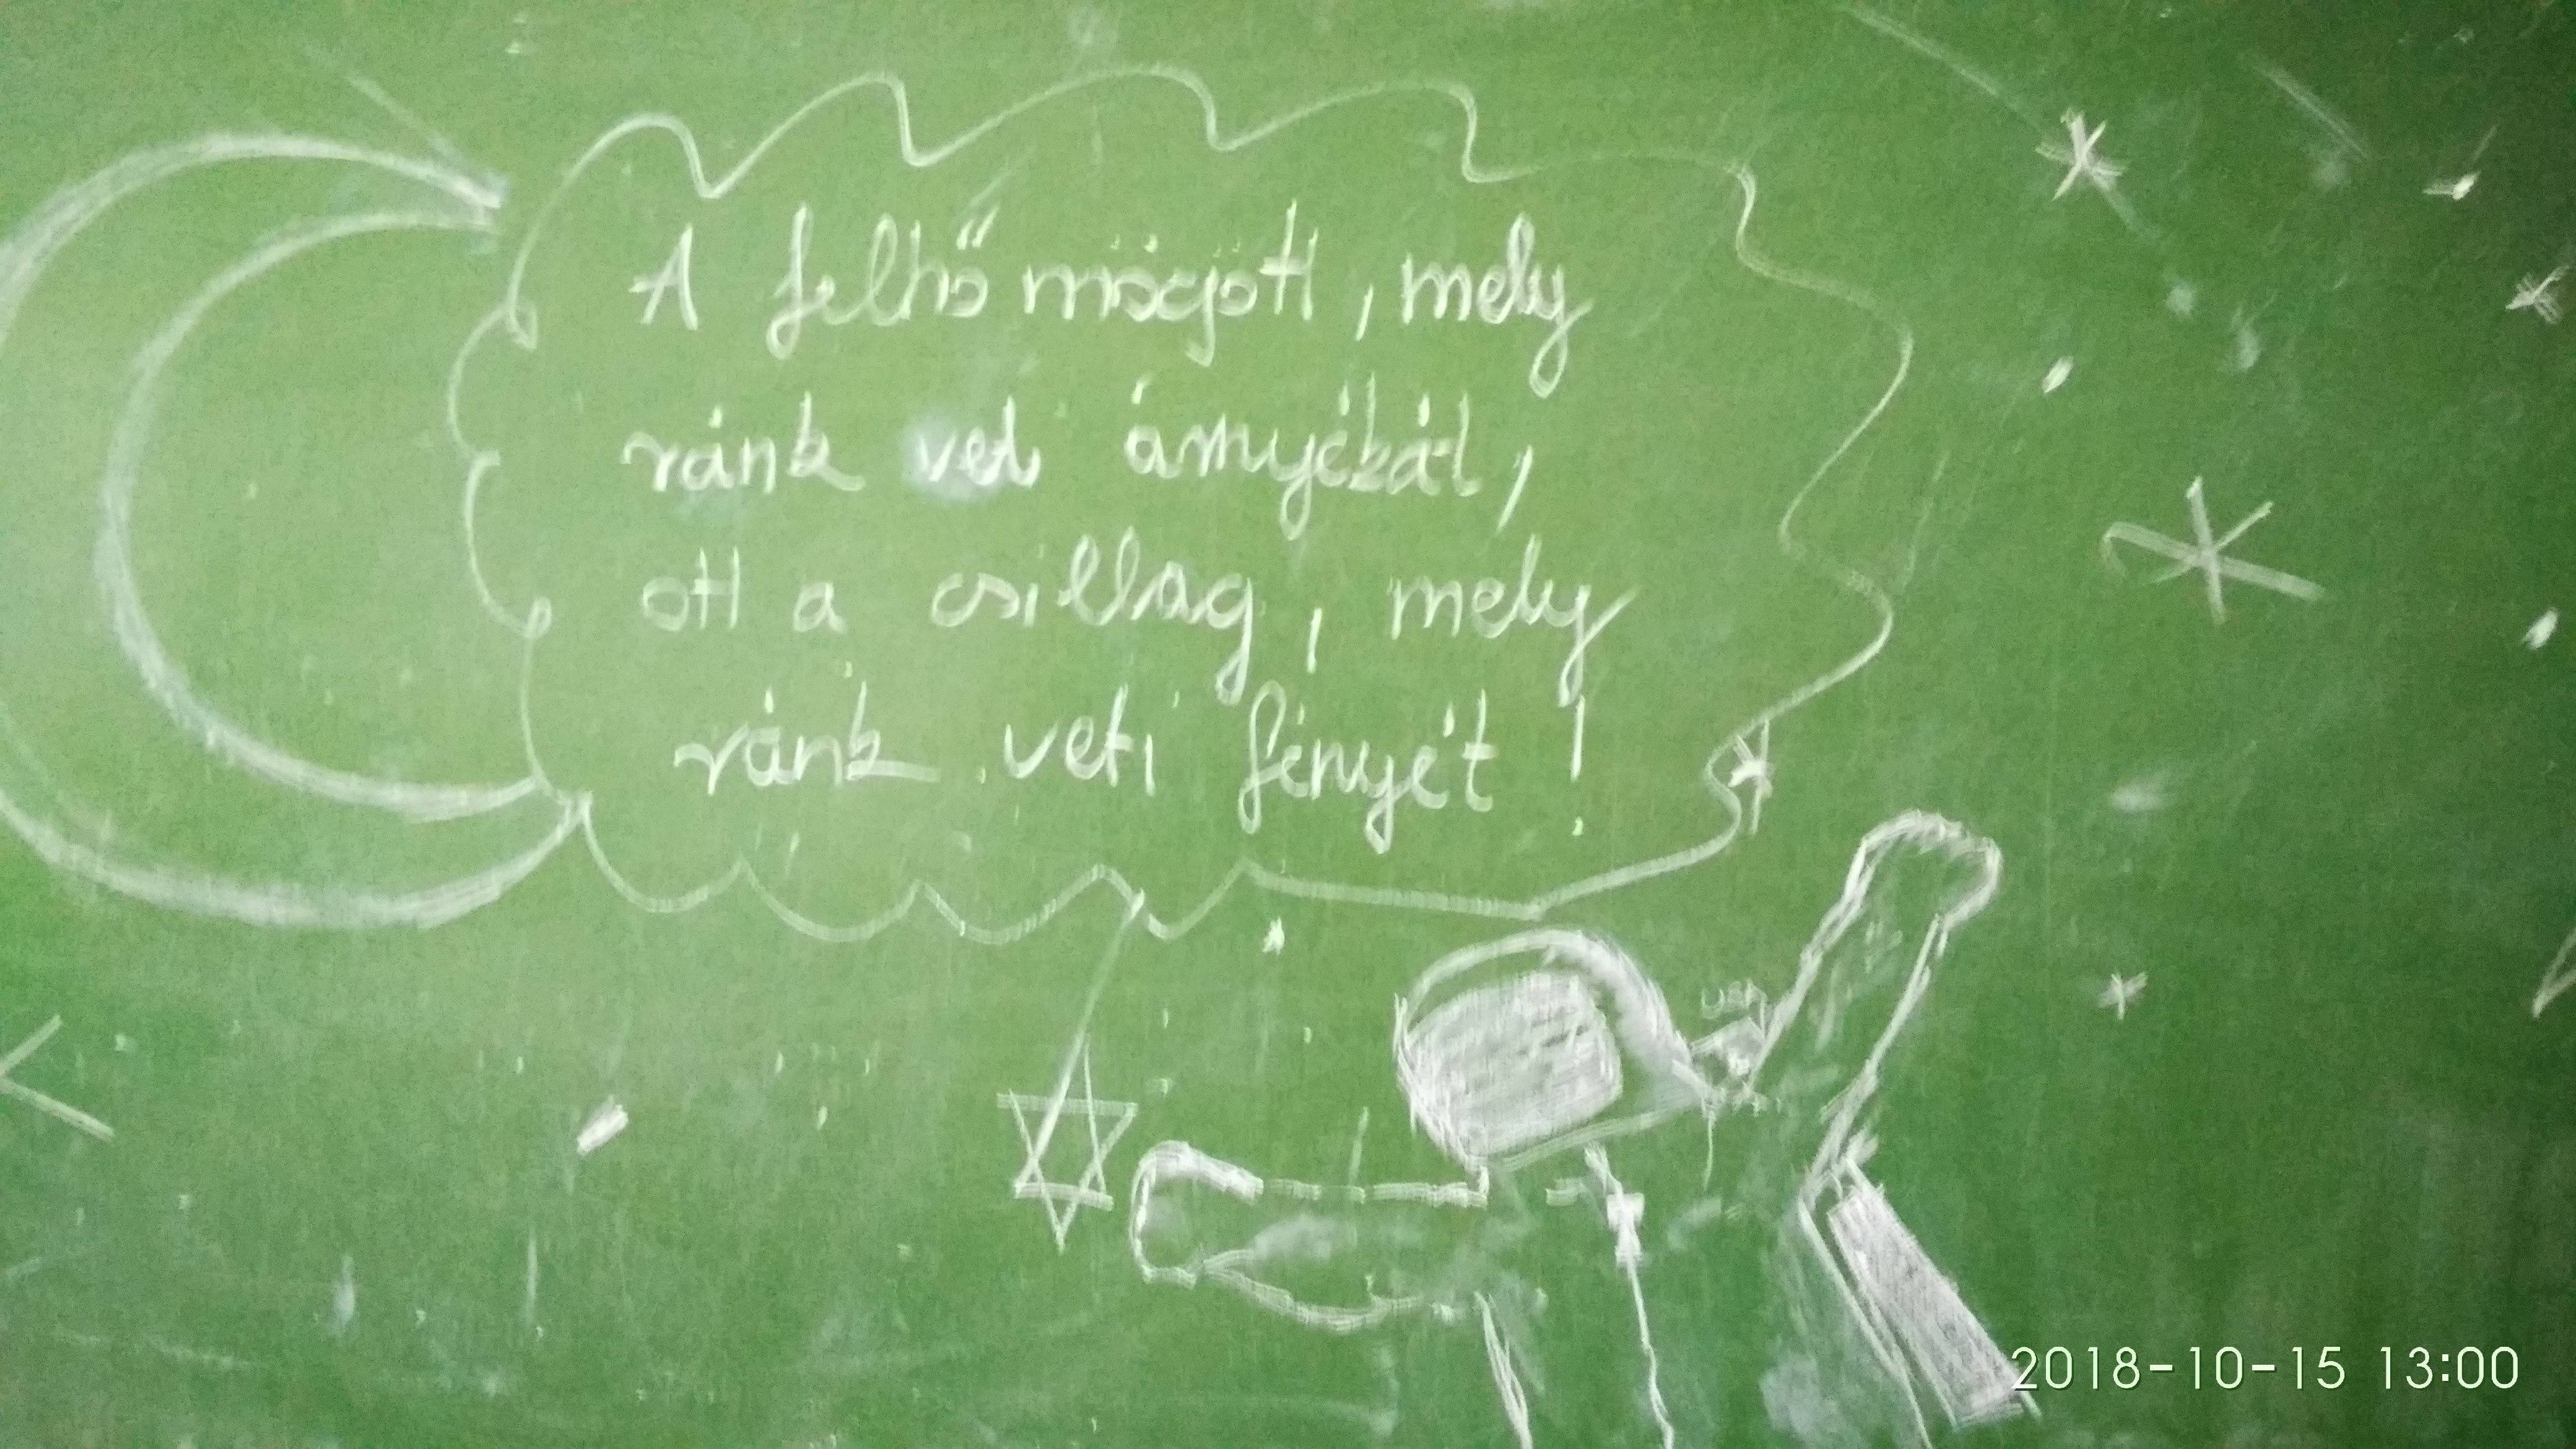 A felhő mögött, mely
ránk veti árnyékát,
ott a csillag, mely
ránk veti fényét!
USA
2018-10-15 13:00